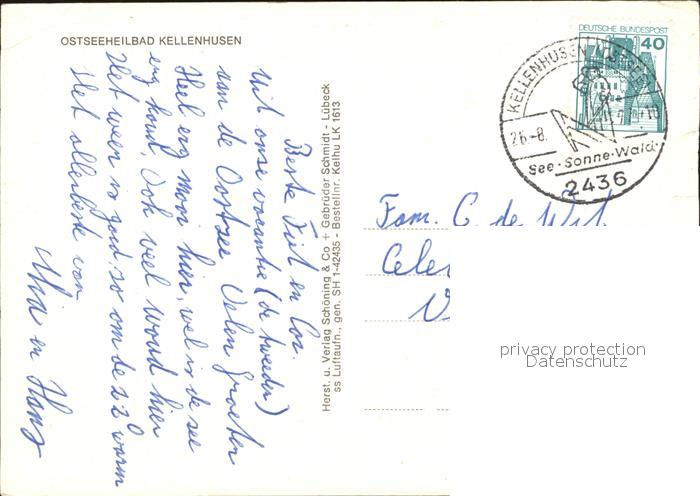 OSTSEEHEILBAD KELLENHUSEN
Beste Fiet en Cor.
Uit onze vacantie (de tweede)
van de Oostzee Velen Groeten
Heel erg mooi hier, wel is de see
erg koud. Ook veel woud hier
Het weer is goed, zo om de 22° warm
Het allerbeste van
Mia en Hans
Horst. u. Verlag Schöning & Co + Gebrüder Schmidt - Lübeck
ss Luftaufn., gen. SH 1-42435 - Bestellnr. Kelhu LK 1613
DEUTSCHE BUNDESPOST
40
KELLENHUSEN
26.-8.
See·Sonne·Wald
2436
Fam. C. de Wit
privacy protection
Datenschutz